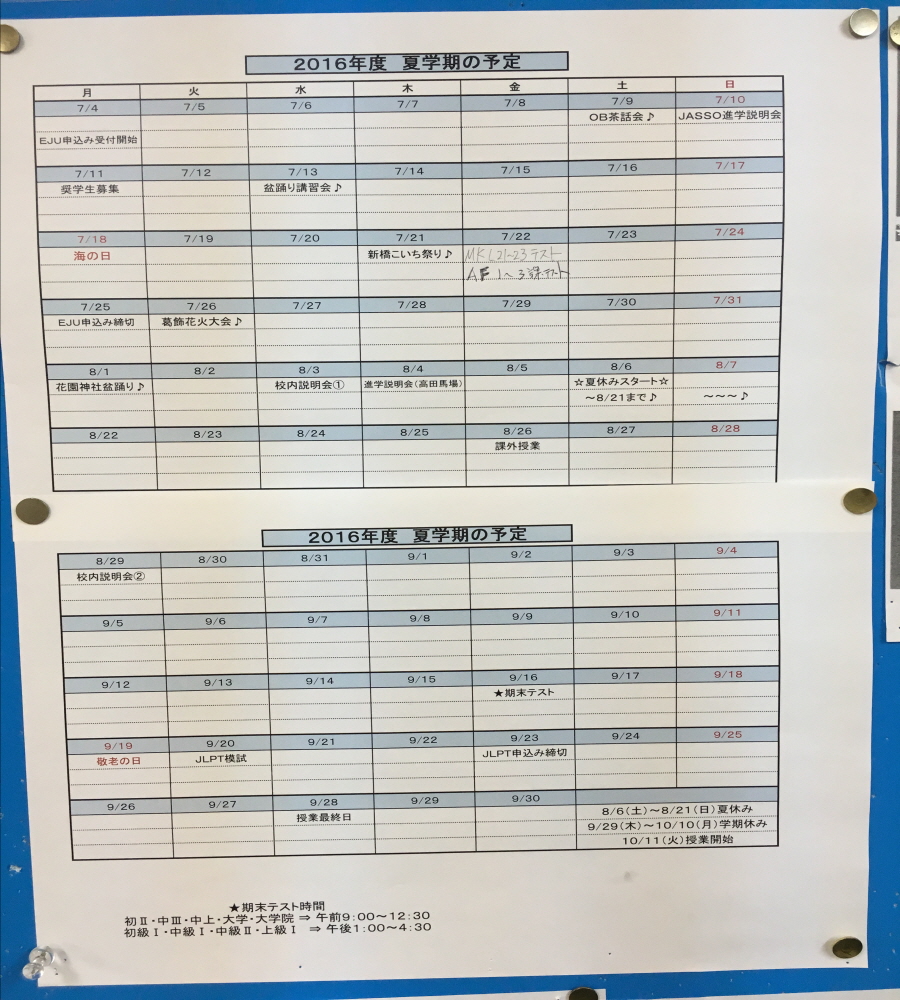 2016年度 夏学期の予定
月 火 水 木 金 土 日
7/4 7/5 7/6 7/7 7/8 7/9 7/10
OB茶話会♪ JASSO進学説明会
EJU申込み受付開始
7/11 7/12 7/13 7/14 7/15 7/16 7/17
奨学生募集 盆踊り講習会♪
7/18 7/19 7/20 7/21 7/22 7/23 7/24
海の日 新橋こいち祭り♪ MK L21~23テスト
AF 1~3課テスト
7/25 7/26 7/27 7/28 7/29 7/30 7/31
EJU申込み締切 葛飾花火大会♪
8/1 8/2 8/3 8/4 8/5 8/6 8/7
花園神社盆踊り♪ 校内説明会① 進学説明会(高田馬場) ☆夏休みスタート☆
~8/21まで♪ ~~~♪
8/22 8/23 8/24 8/25 8/26 8/27 8/28
課外授業
2016年度 夏学期の予定
8/29 8/30 8/31 9/1 9/2 9/3 9/4
校内説明会②
9/5 9/6 9/7 9/8 9/9 9/10 9/11
9/12 9/13 9/14 9/15 9/16 9/17 9/18
★期末テスト
9/19 9/20 9/21 9/22 9/23 9/24 9/25
敬老の日 JLPT模試 JLPT申込み締切
9/26 9/27 9/28 9/29 9/30
授業最終日 8/6(土)~8/21(日)夏休み
9/29(木)~10/10(月)学期休み
10/11(火)授業開始
★期末テスト時間
初Ⅱ・中Ⅲ・中上・大学・大学院 ⇒ 午前9:00~12:30
初級Ⅰ・中級Ⅰ・中級Ⅱ・上級Ⅰ ⇒ 午後1:00~4:30